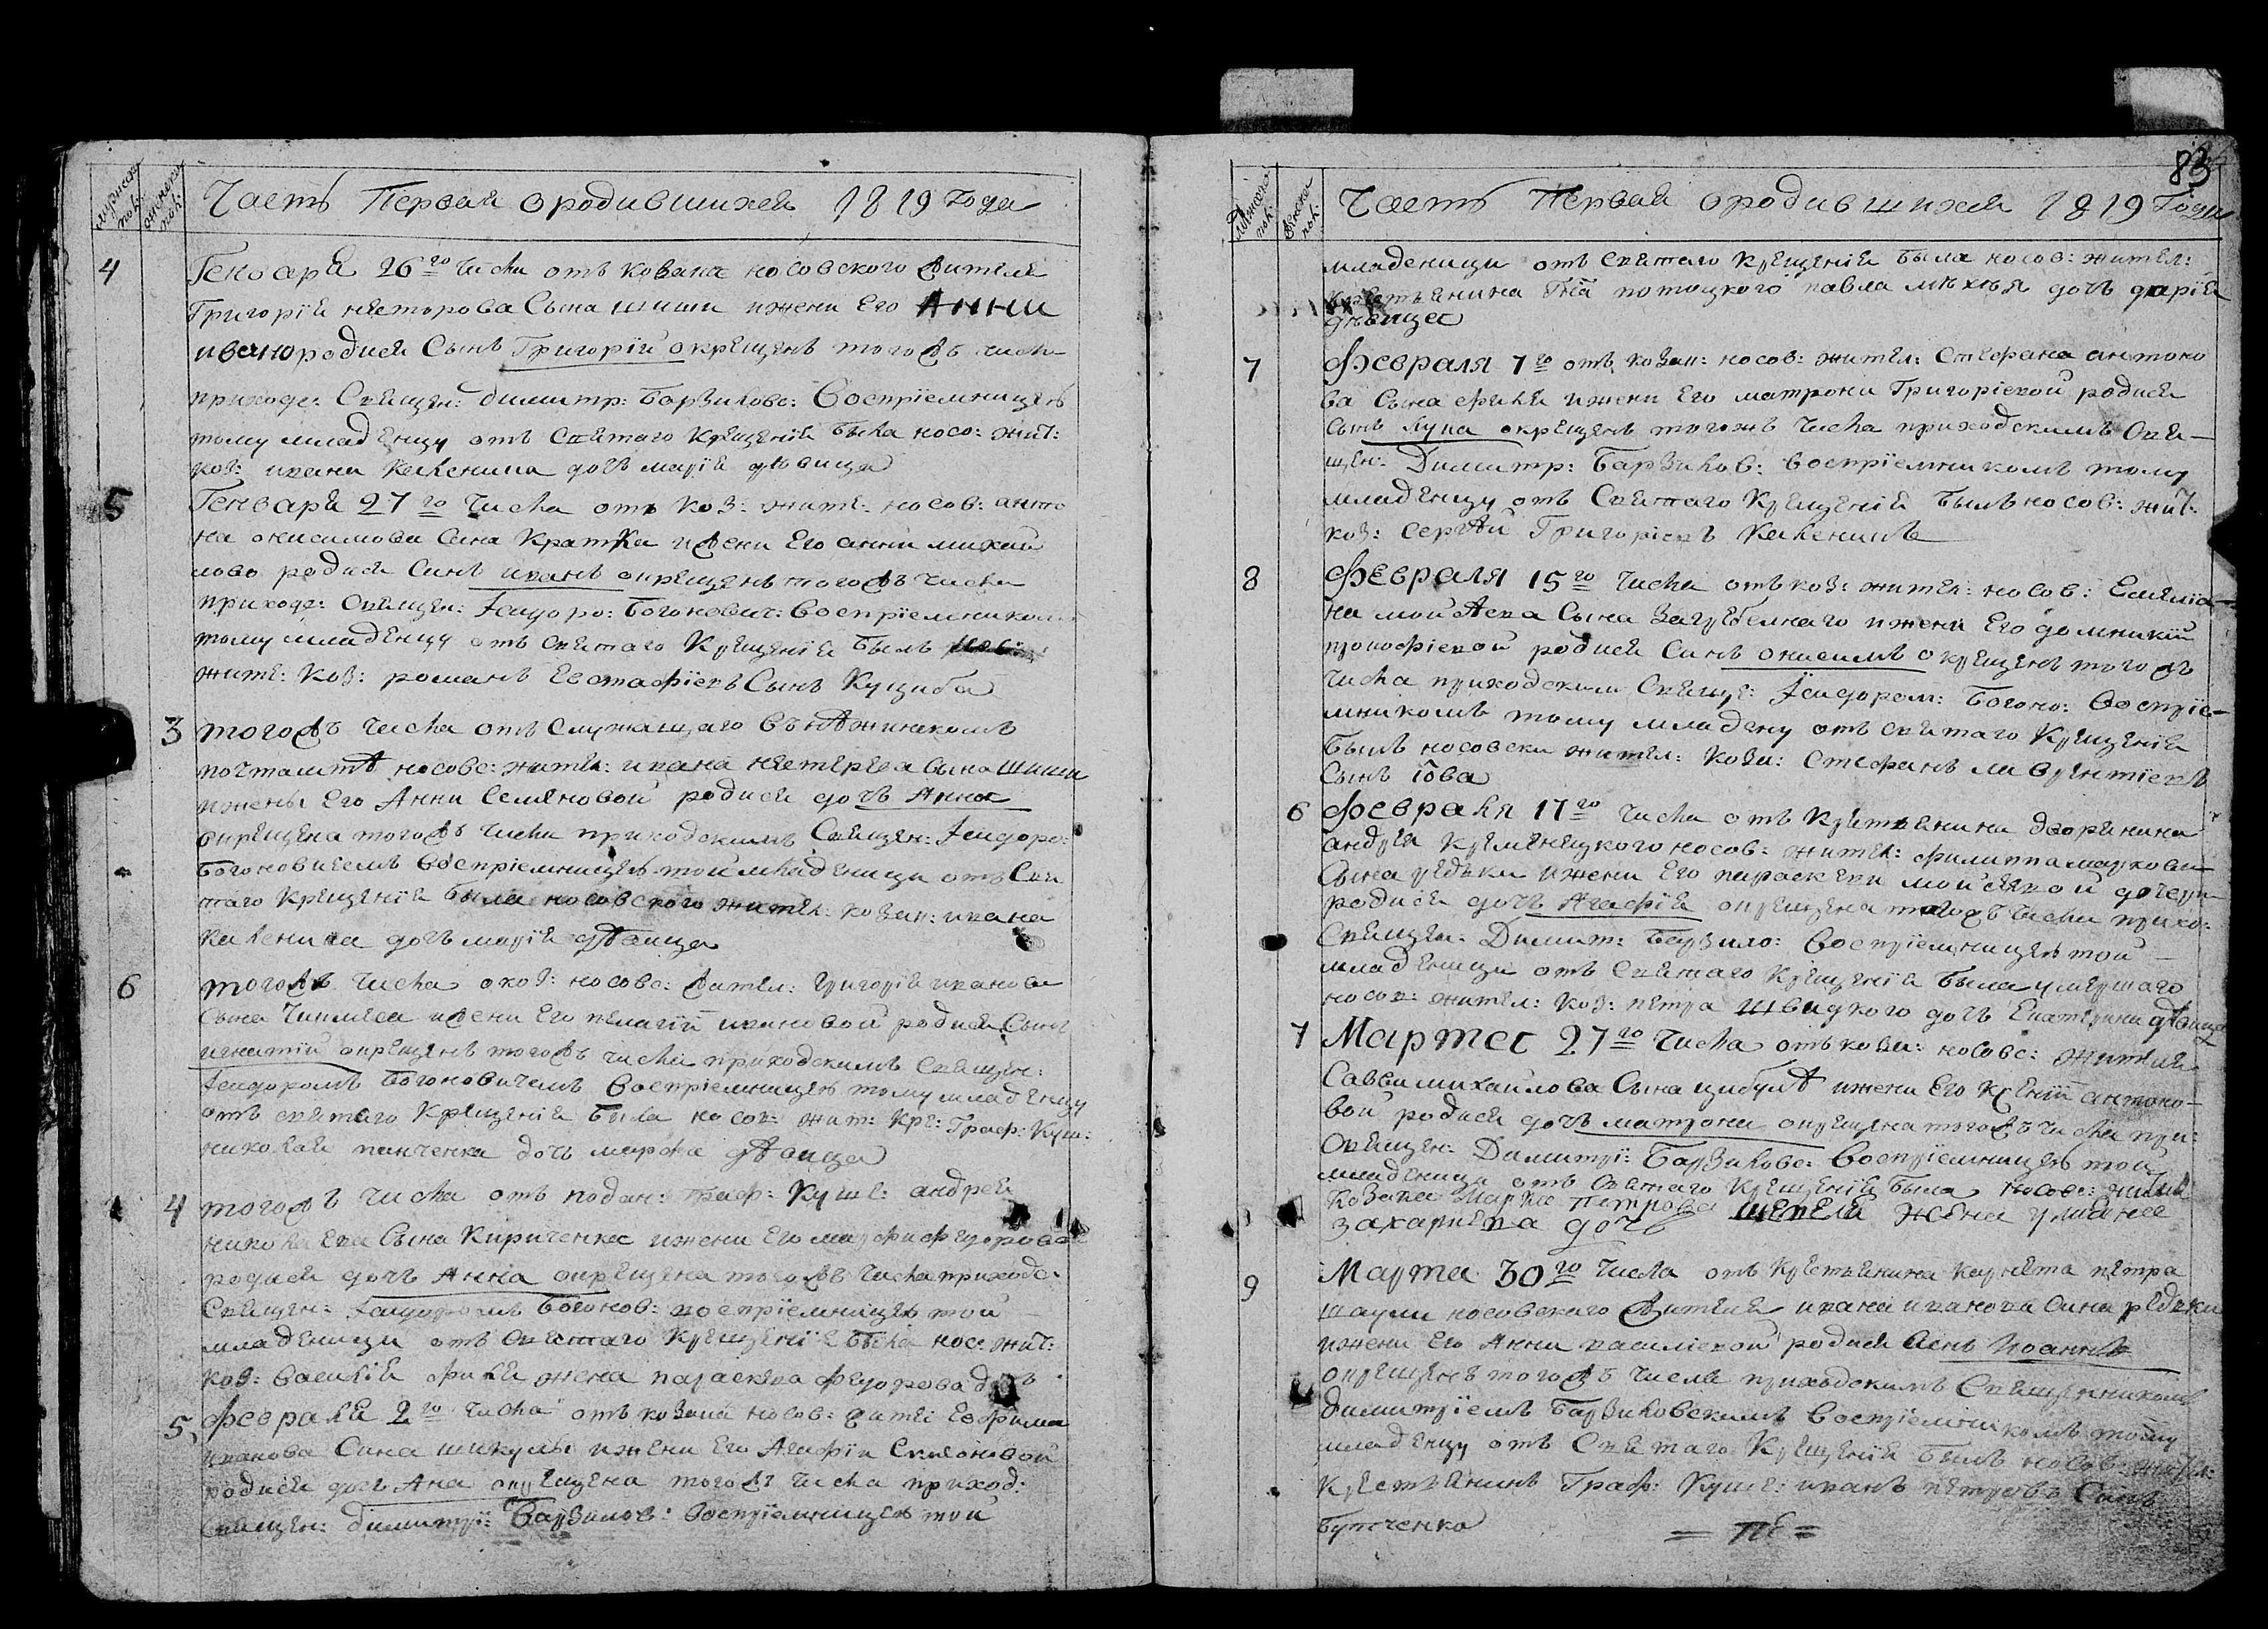 мужеск: пол:
женски: пол:
Часть Первая ородившихся 1819 года
4
Генваря 26го числа отъ козака носовского жителя
Григорія несторова Сына шиши ижени Его Анни
ивано родися Сынъ Григорій окрещенъ тогожъ числа
приходс: Священ: димитр: Барзиковс: Воспріемницею
тому младенцу отъ Святаго Крещенія была носо: жит:
коз: ивана Каленика дочъ марія дѣвица
5
Генваря 27го числа отъ коз: жите: носов: анто
на онисимова Сина Кратка ижени Его анни михай
лово родися Синъ иванъ окрещенъ тогожъ числа
приходс: Священ: Ісидоро: Богонович: Воспріемником
тому младенцу отъ святаго Крещенія былъ
жите: Коз: романъ Евстафіевъ Сынъ Куциба
3
тогожъ числа отъ служащаго въ нѣжинскомъ
почтамтѣ носовс: жител: ивана нестерева Сына шиши
ижены Его Анни Семеновой родися дочъ Анна
окрещена тогожъ числа приходскимъ Священ: Ісидоро:
Богоновичемъ Воспріемницею той младеници отъ Свя
таго Крещенія была носовского жител: козак: ивана
каленика дочъ марія дѣвица
6
тогожъ числа окоз: носовс: жител: григорія иванова
Сына Чипляса ижени Его пелагій ивановой родися Сынъ
игнатій окрещенъ тогожъ числа приходскимъ Священ:
Ісидоромъ Богоновичемъ Воспріемницею тому младенцу
отъ святаго Крещенія была носов: жит: Кре: Граф: Куш:
николая панченка дочъ марфа дѣвица
4
тогожъ числа отъ подан: граф: Куше: андрея
николаева Сына Кириченка ижени Его марфи федоровой
родися дочъ Анна окрещена тогожъ числа приходс:
Священ: Ісидоромъ Богонов: воспріемницею той
младеници отъ Святаго Крещенія была нос: жит:
коз: василія фили жена параскева федорова дочъ
5
февраля 2го числа отъ козака носов: жите: Евфима
иванова Сина шикулы ижени Его Агафіи Симоновой
родися дочъ Ана окрещена тогожъ числа приход:
Священ: димитрі: Барзиков: воспріемницею той
83
мужеско: пол:
женска: пол:
Часть Первая ородившихся 1819 Года
младеници отъ святаго крещенія была носов: жител:
крестьянина Гна потоцкого павла дочъ дарія
дѣвица
7
февраля 7го отъ козак: носов: жител: Стефана антоно
ва Сына фили ижени Его матрони Григоріевой родися
Сынъ Лука окрещенъ тогожъ числа приходскимъ Свя-
щен: Димитр: Барзиков: воспріемникомъ тому
младенцу отъ Святаго Крещенія былъ носов: жит:
коз: Сергѣй Григоріевъ Каленикъ
8
февраля 15го числа отъ коз: жител: носов: Емеліа
на мойсѣева Сына Загребелнаго ижени Его домникій
прокофіевой родися Синъ онисимъ окрещенъ тогожъ
числа приходскимъ Свяще: Ісидором: Богоно: Воспріе-
мникомъ тому младену отъ святаго Крещенія
былъ носовски жител: Коза: Стефанъ лаврентіевъ
Сынъ іова
6
февраля 17го числа отъ крестьянина дворянина
андрея кременецкого носов: жител: филиппа маркова
Сына редьки ижени Его параскеви мойсѣевой дочери
родися дочъ Агафія окрещена тогожъ числа прихо:
Священ: Димит: Барзико: Воспріемницею той
младеници отъ святаго крещенія была умершаго
носов: жител: коз: петра швидкого дочъ Екатерина дѣвица
7
Марта 27го числа отъ коза: носовс: жителя
Савви михайлова Сына цибулѣ ижени Его Ксеніи антоно-
вой родися дочъ матрона окрещена тогожъ числа при:
Священ: Димитрі: Барзиковс: Воспріемницею той
младеници отъ Святаго Крещенія была носовс: жител
козака Марка Петрова шепели жена уляна
захаріева дочъ
9
Марта 30го числа отъ крестьянина корнета петра
шаули носовского жителя ивана иванова Сина редьки
ижени Его Анни василіевой родися Синъ Иоаннъ
окрещенъ тогожъ числа приходскимъ Священникомъ
димитріемъ Барзиковскимъ Воспріемникомъ тому
младенцу отъ Святаго Крещенія былъ носов: жител:
крестьянинъ Граф: Куше: иванъ петровъ Синъ
Бутченко